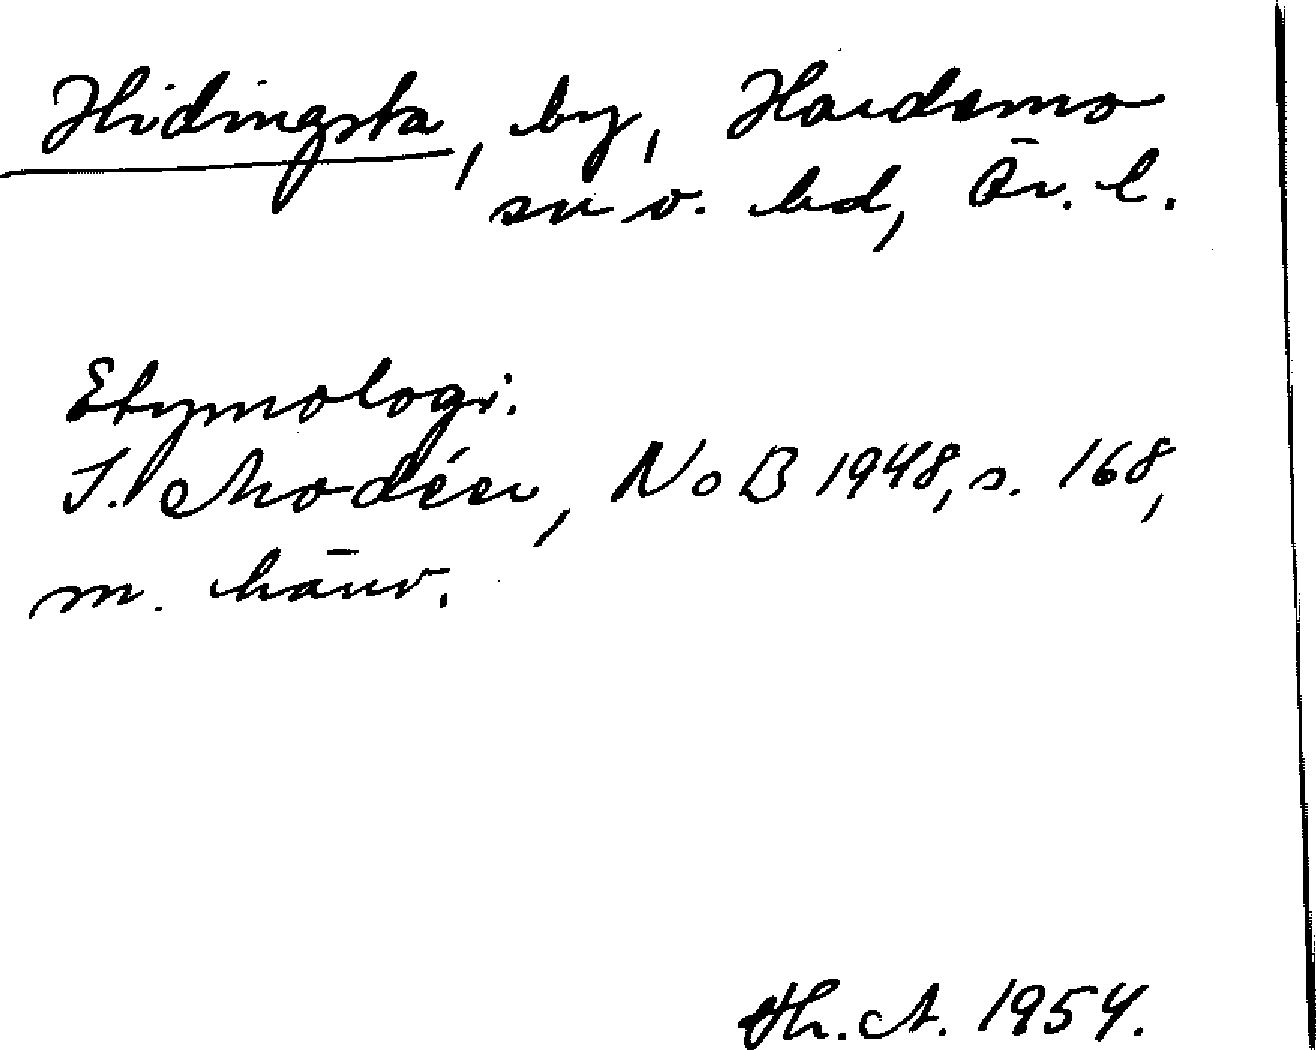 Hidingsta, by, Hardemo
sn o. hd, Ör. l.
Etymologi.
I. Modéer, NoB 1948, s. 168,
m. hänv.
Th. A. 1954.